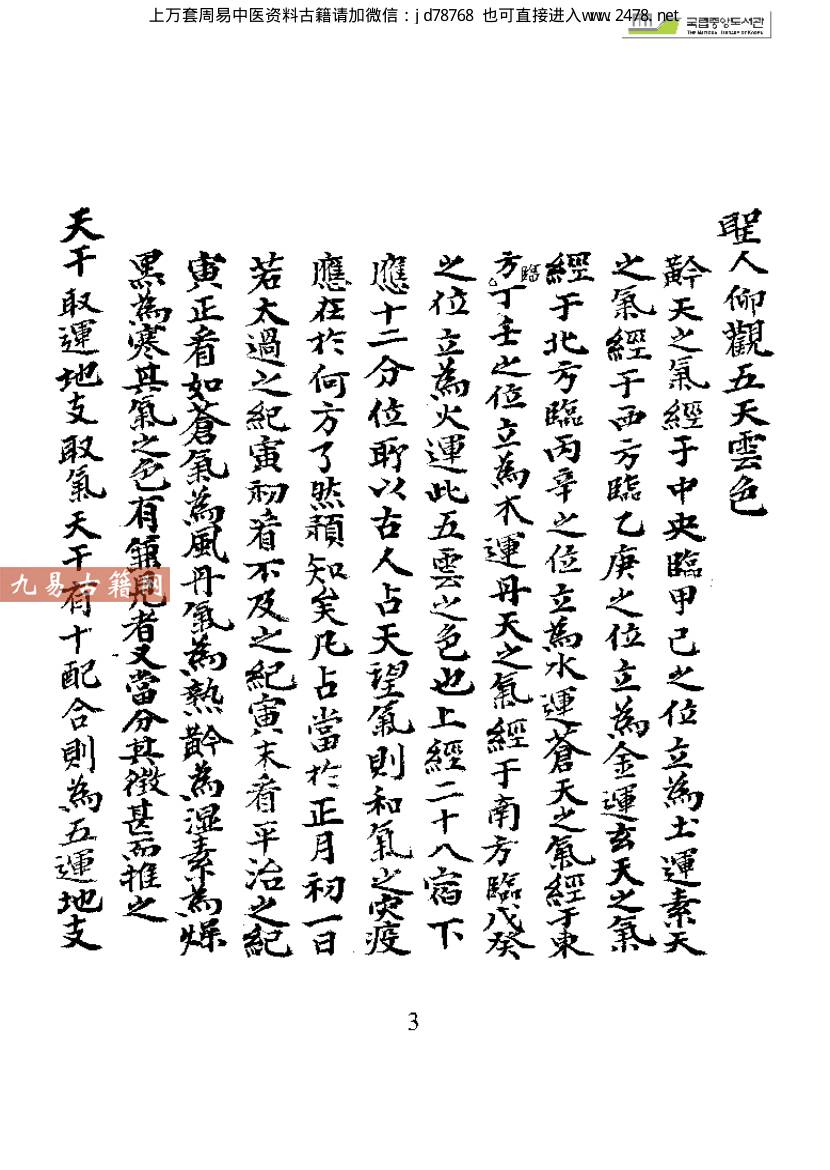 上万套周易中医资料古籍请加微信：jd78768 也可直接进入www.2478.net
국립중앙도서관
THE NATIONAL LIBRARY OF KOREA
聖人仰觀五天雲色
黅天之氣經于中央臨甲己之位立為土運素天
之氣經于西方臨乙庚之位立為金運玄天之氣
經于北方臨丙辛之位立為水運蒼天之氣經于東
方臨丁壬之位立為木運丹天之氣經于南方臨戊癸
之位立為火運此五雲之色也上經二十八宿下
應十二分位所以古人占天望氣則和氣之灾疫
應在於何方了然預知矣凡占當於正月初一日
若太過之紀寅初看不及之紀寅末看平治之紀
寅正看如蒼氣為風丹氣為熱黅為湿素為燥
黒為寒其氣之色有偏見者又當分其徵甚而推之
天干取運地支取氣天干有十配合則為五運地支
九易古籍网
3